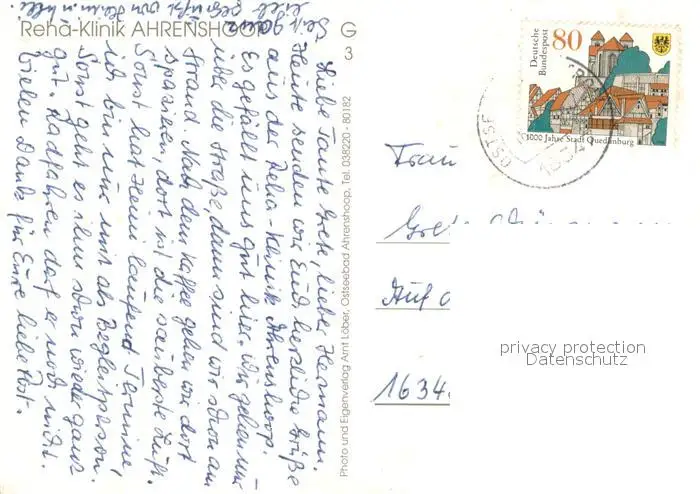 Reha-Klinik AHRENSHOOP
G
3
Liebe Tante Grete, lieber Hermann.
Heute senden wir Euch herzliche Grüße
aus der Reha-Klinik Ahrenshoop.
Es gefällt uns gut hier. Wir gehen nur
über die Straße, dann sind wir schon am
Strand. Nach dem Kaffee gehen wir dort
spazieren dort ist die sauberste Luft.
Sonst hat Heini laufend Termine,
ich bin nur mit als Begleitperson.
Sonst geht es ihm schon wieder ganz
gut. Radfahren darf er noch nicht.
Vielen Dank für Eure liebe Post.
Seit ganz
gegrüßt von
Photo und Eigenverlag Arnt Löber, Ostseebad Ahrenshoop, Tel. 038220 - 80182
Deutsche
Bundespost
80
1000 Jahre Stadt Quedlinburg
OSTSE
Frau
Auf d
1634
privacy protection
Datenschutz